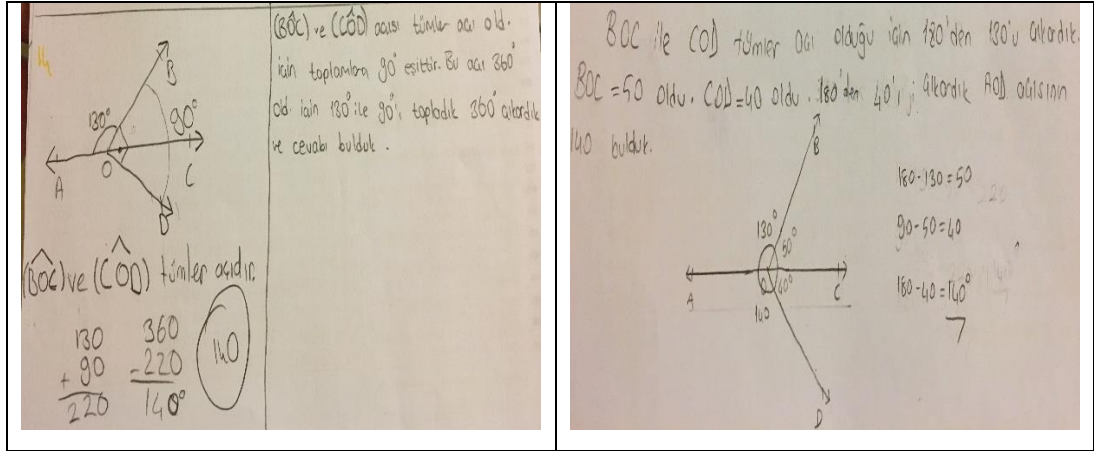 130°
B
90°
A
O
C
D
(BOC) ve (COD) tümler açıdır.
130
+ 90
220
360
-220
140°
140
(BOC) ve (COD) açısı tümler açı old.
için toplamları 90° eşittir. Bu açı 360°
old. için 130° ile 90°'ı topladık 360° çıkardık
ve cevabı bulduk.
BOC ile COD tümler açı olduğu için 180'den 130'u çıkardık.
BOC = 50 oldu. COD = 40 oldu. 180'den 40'ı çıkardık AOD açısının
140 bulduk.
B
130°
50°
A
O
40°
C
140
D
180-130=50
90-50=40
180-40=140°